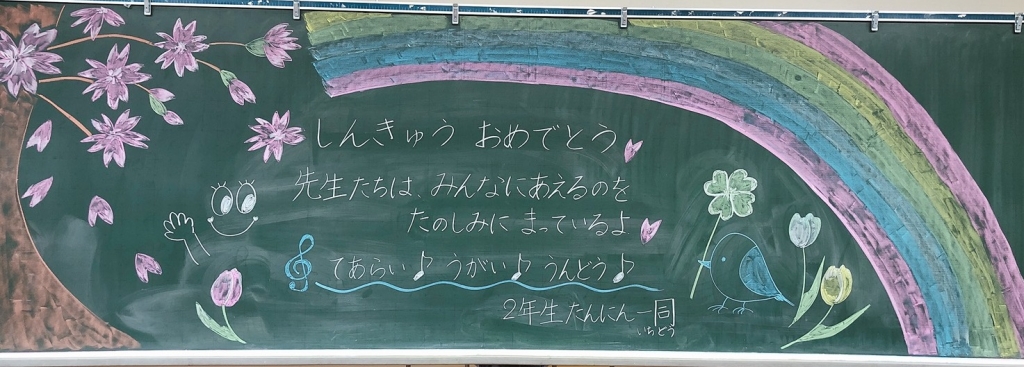 しんきゅう おめでとう
先生たちは、みんなにあえるのを
たのしみに まっているよ
てあらい♪ うがい♪ うんどう♪
2年生たんにん一同
いちどう